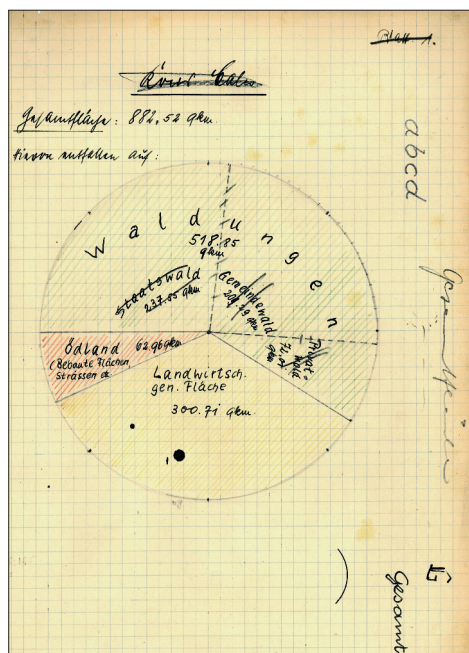 Blatt 1.
Kreis Calw
Gesamtfläche: 882,52 qkm.
Hievon entfallen auf:
Waldungen
518.85
qkm
Staatswald
237.85 qkm
Gemeindewald
qkm
Privat-
wald
qkm
Ödland 62.96 qkm
(Bebaute Flächen,
Strassen etc.
Landwirtsch.
gen. Fläche
300.71 qkm.
abcd
Gesamtfläche
Gesamt